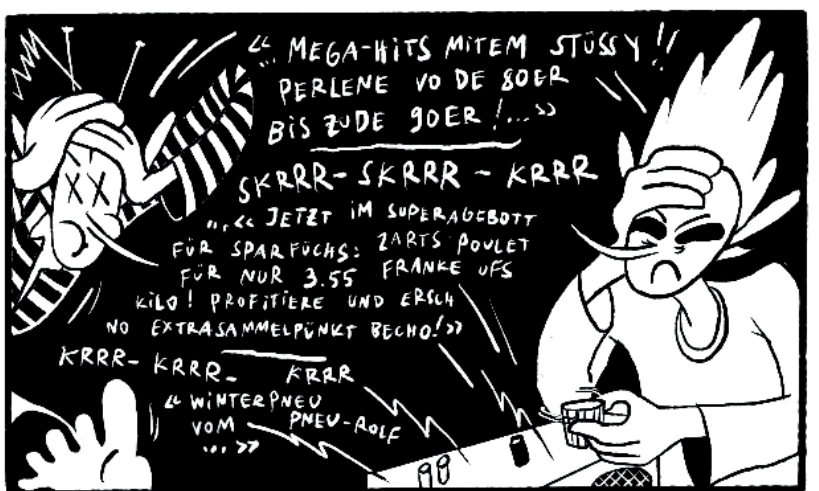 «... MEGA-HITS MITEM STÜSSY!!
PERLENE VO DE 80ER
BIS ZUDE 90ER!...»
SKRRR- SKRRR - KRRR
...« JETZT IM SUPERAGEBOTT
FÜR SPARFÜCHS: ZARTS POULET
FÜR NUR 3.55 FRANKE UFS
KILO! PROFITIERE UND ERSCH
NO EXTRASAMMELPÜNKT BECHO!»
KRRR- KRRR- KRRR
« WINTERPNEU
VOM PNEU-ROLF
...»